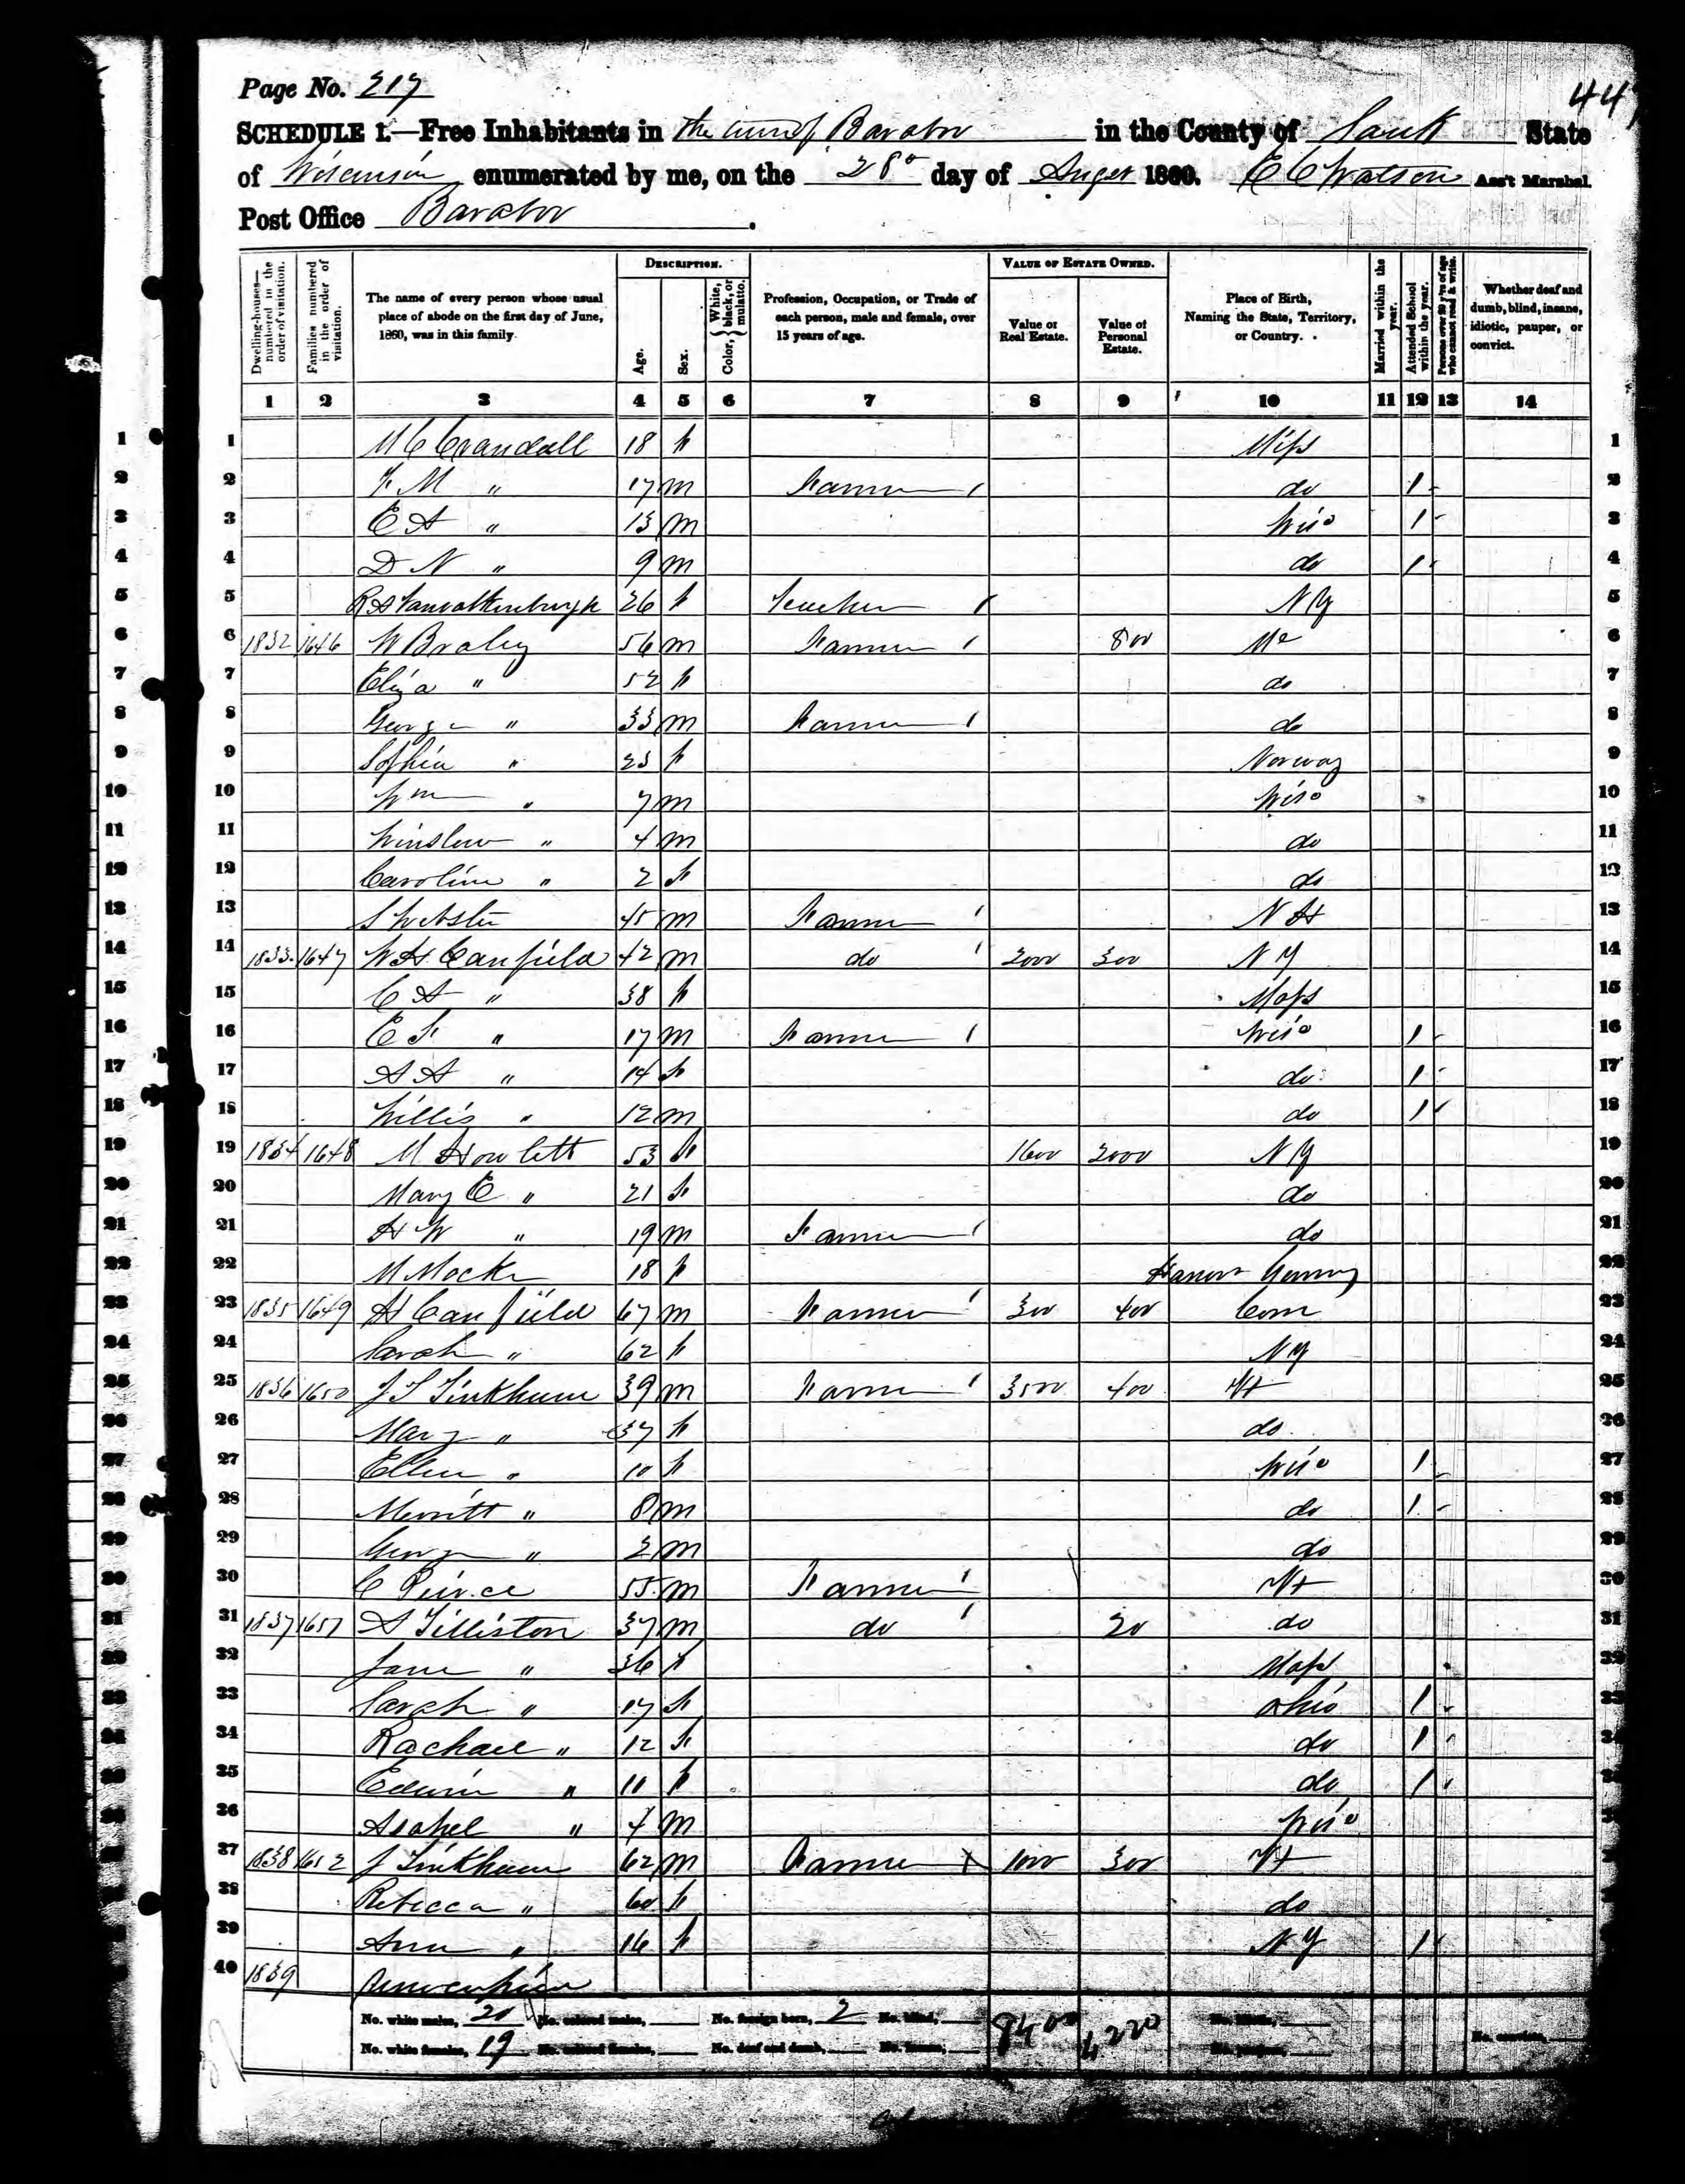 Page No. 217
447
SCHEDULE 1.—Free Inhabitants in the town of Baraboo in the County of Sauk State
of Wisconsin enumerated by me, on the 28th day of August 1860. E C Watson Ass't Marshal.
Post Office Baraboo.
Dwelling-houses—numbered in the order of visitation.
Families numbered in the order of visitation.
The name of every person whose usual place of abode on the first day of June, 1860, was in this family.
DESCRIPTION.
Age.
Sex.
Color, { White, black, or mulatto.
Profession, Occupation, or Trade of each person, male and female, over 15 years of age.
VALUE OF ESTATE OWNED.
Value of Real Estate.
Value of Personal Estate.
Place of Birth, Naming the State, Territory, or Country.
Married within the year.
Attended School within the year.
Persons over 20 y'rs of age who cannot read & write.
Whether deaf and dumb, blind, insane, idiotic, pauper, or convict.
1 2 3 4 5 6 7 8 9 10 11 12 13 14
1 M C Crandall 18 f Miss 1
2 F M " 17 m Farmer / do 1 2
3 E A " 13 m Wis 1 3
4 D N " 9 m do 1 4
5 R A Vanvalkenburgh 26 f Teacher / N Y 5
6 1832 1646 W Braley 56 m Farmer / 800 Me 6
7 Eliza " 52 f do 7
8 George " 33 m Farmer / do 8
9 Sophia " 23 f Norway 9
10 Wm " 7 m Wis 10
11 Winslow " 4 m do 11
12 Caroline " 2 f do 12
13 S Webster 45 m Farmer / N H 13
14 1833 1647 W H Canfield 42 m do / 2000 300 N Y 14
15 C A " 38 f Mass 15
16 E F " 17 m Farmer / Wis 1 16
17 A A " 14 f do 1 17
18 Willis " 12 m do 1 18
19 1834 1648 M Howlett 53 f 1600 2000 N Y 19
20 Mary E " 21 f do 20
21 H W " 19 m Farmer / do 21
22 M Mocke 18 f Hanover Germany 22
23 1835 1649 H Canfield 67 m Farmer / 300 400 Conn 23
24 Sarah " 62 f N Y 24
25 1836 1650 J S Tinkham 39 m Farmer / 3500 400 Vt 25
26 Mary " 37 f do 26
27 Ellen " 10 f Wis 1 27
28 Merritt " 8 m do 1 28
29 George " 2 m do 29
30 C Peirce 55 m Farmer / Vt 30
31 1837 1651 A Tilliston 37 m do / 20 do 31
32 Jane " 36 f Mass 32
33 Sarah " 17 f Ohio 1 33
34 Rachael " 12 f do 1 34
35 Edwin " 11 f do 1
36 Asahel " 4 m Wis
37 1838 1652 J Tinkham 62 m Farmer X 1000 300 Vt
38 Rebecca " 60 f do
39 Ann " 16 f N Y 1
40 1839
No. white males, 20 No. colored males, No. foreign born, 2 No. blind, 8400 4220
No. white females, 19 No. colored females, No. deaf and dumb, No. insane, No. convicts,